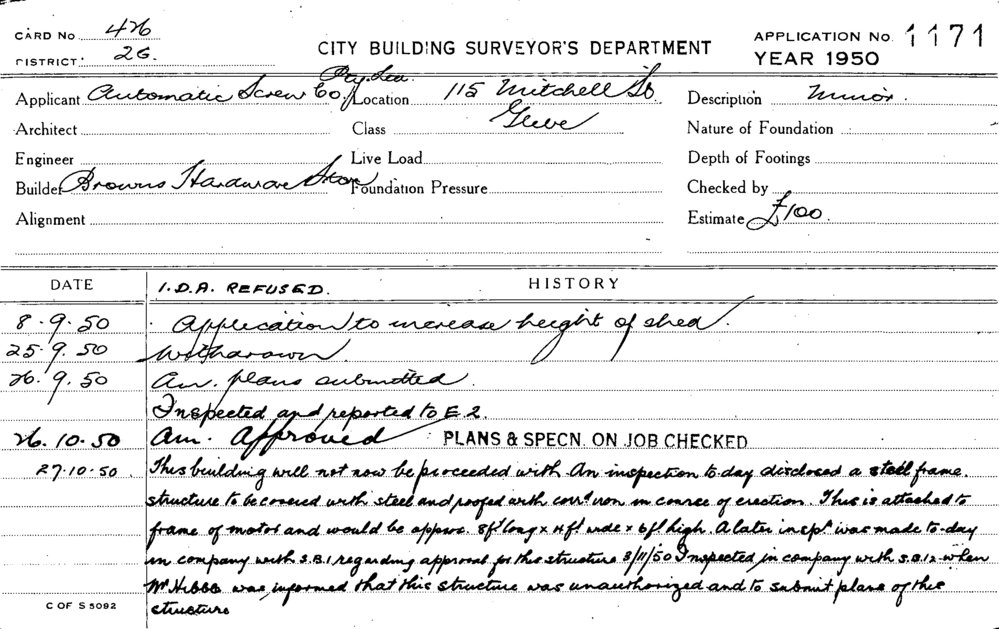 CARD No. 426
DISTRICT: 2G.
CITY BUILDING SURVEYOR'S DEPARTMENT
APPLICATION No. 1171
YEAR 1950
Applicant Automatic Screw Co. Pty. Location 115 Mitchell St
Description Minor.
Architect
Class Glebe
Nature of Foundation
Engineer
Live Load
Depth of Footings
Builder Browns Hardware Store
Foundation Pressure
Checked by
Alignment
Estimate £100.
DATE HISTORY
I.D.A. REFUSED.
8.9.50 Application to increase height of shed.
25.9.50 Withdrawn
26.9.50 Am. plans submitted.
Inspected and reported to E.2.
26.10.50 Am. Approved PLANS & SPECN. ON JOB CHECKED
27.10.50. This building will not now be proceeded with An inspection to-day disclosed a steel frame.
structure to be covered with steel and roofed with corrd iron in course of erection. This is attached to
frame of motor and would be approx. 8ft long x 4ft wide x 6ft high. A later inspn was made to-day
in company with S.B.1 regarding approval for this structure 3/11/50 Inspected in company with S.B.12 when
Mr was informed that this structure was unauthorized and to submit plans of this
structure
C OF S 5092